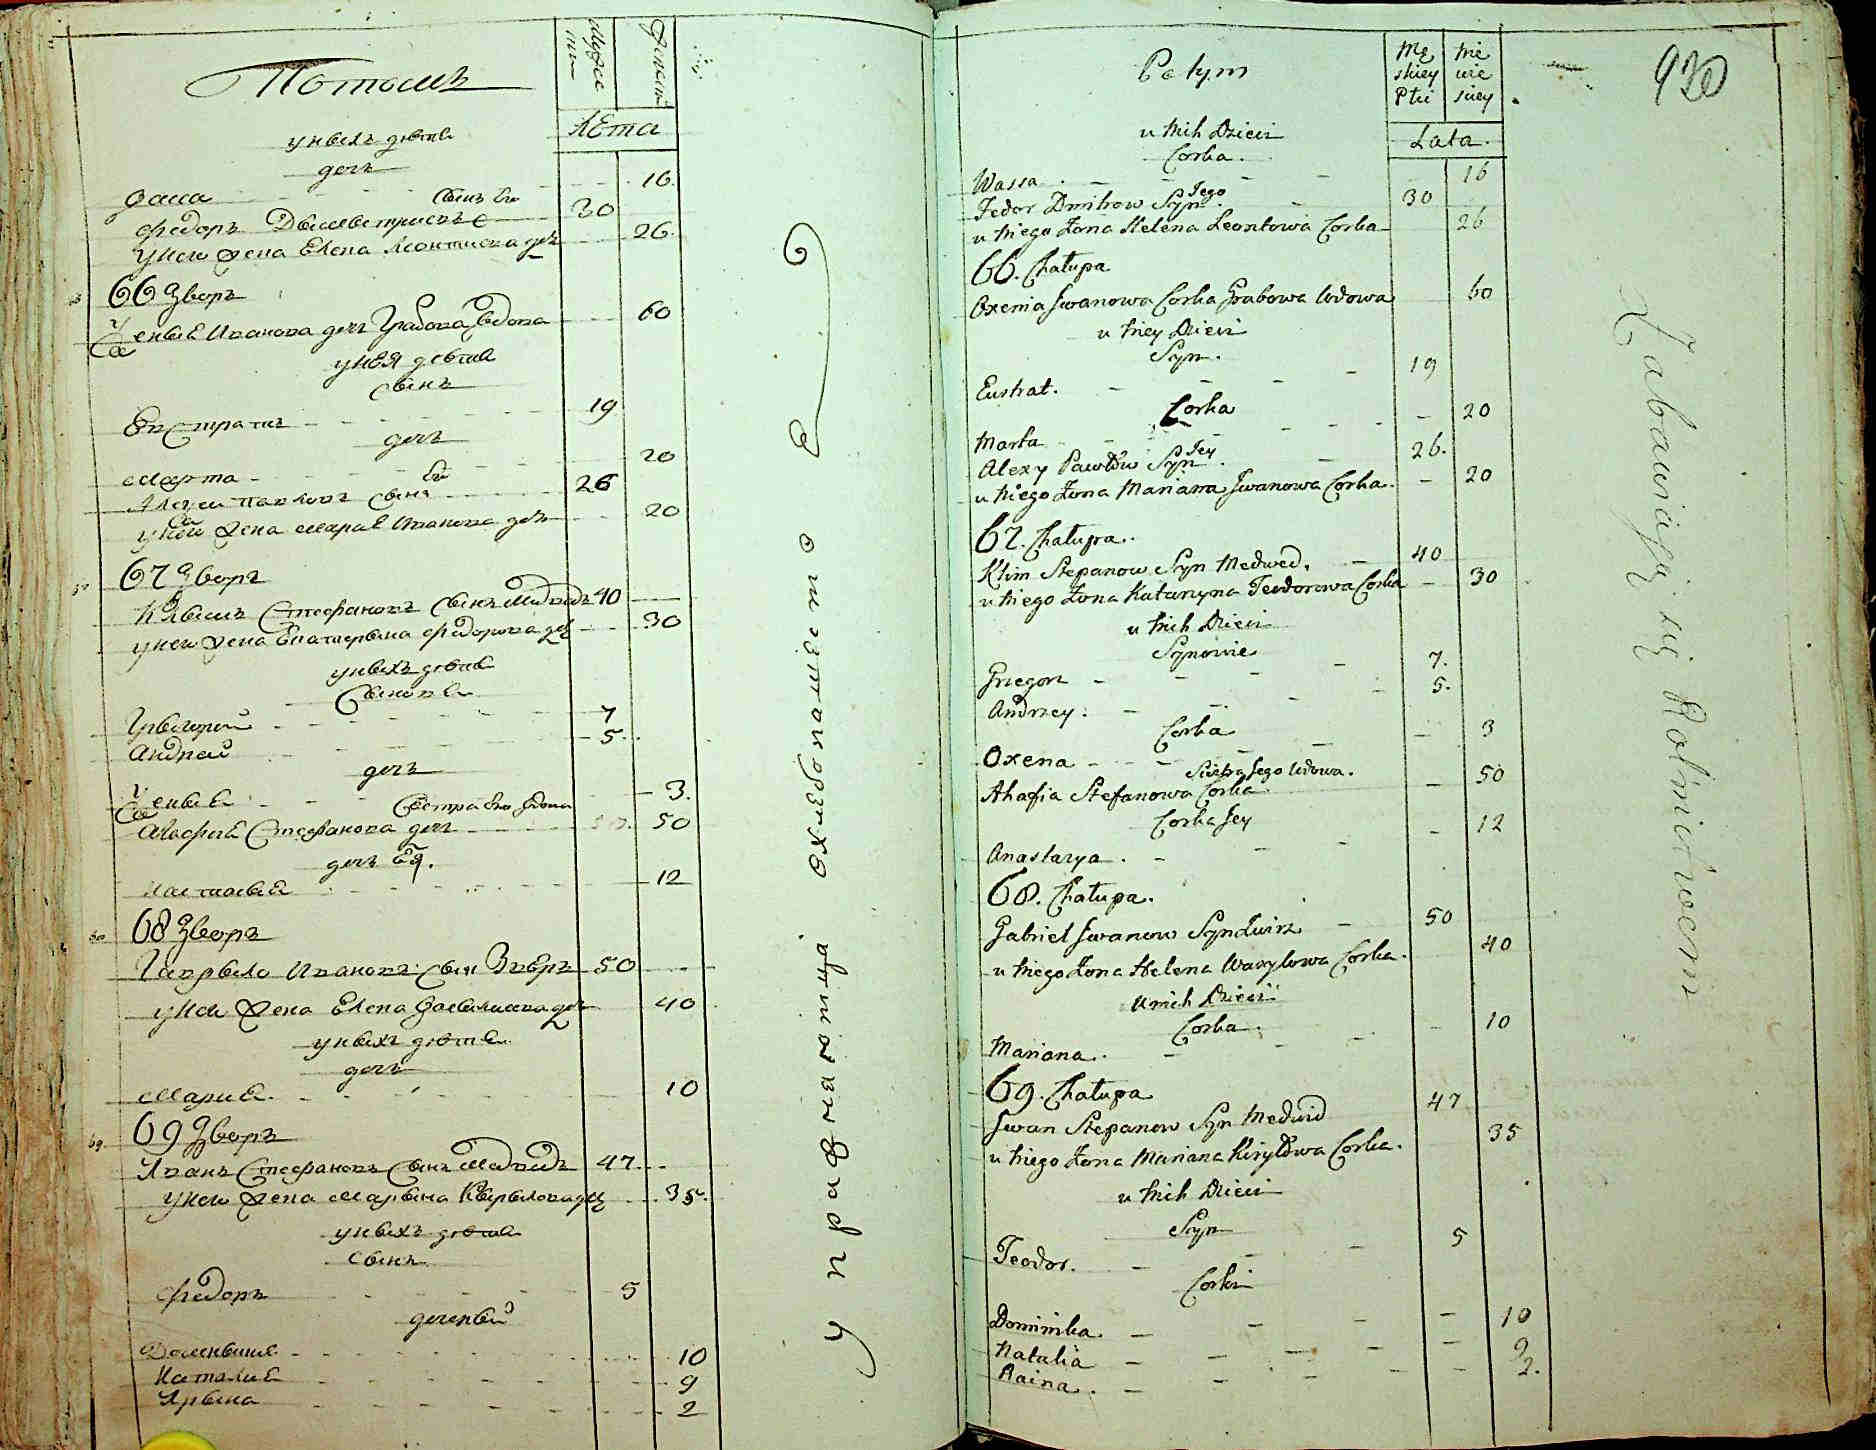 Потомъ
мужес ки
женски
лѣта
у ныхъ дѣти
дочь
Васса 16
Федоръ Дмытровъ сынъ его 30
у него жена Елена Леонтиева дочь 26
66 Дворъ
Ксенья Иванова дочь Грабова вдова 60
у нея дѣти
сынъ
Евстратъ 19
дочь
Марта 20
Алексеи Павловъ сынъ 26
у ней жена Марья Иванова дочь 20
67 Дворъ
Клымъ Стефановъ сынъ Медведь 40
у него жена Екатерына Федорова дочь 30
у ныхъ дѣти
сыновья
Грыгорий 7
Андрей 5
дочь
Ксенья 3
сестра его вдова
Агафия Стефанова дочь 50
дочь Ея.
Настасья 12
68 Дворъ
Гаврыло Ивановъ сын Звѣръ 50
у него жена Елена Васылиева дочь 40
у ныхъ дѣти
дочь
Мария 10
69 Дворъ
Иванъ Стефановъ сынъ Медведь 47
у него жена Марына Кырылова дочь 35
у ныхъ дѣти
сынъ
Федоръ 5
дочеры
Домныкия 10
Наталия 9
Ирына 2
упражнаютца охлебопашество
Potym
Mę skiey Płci
Nie wie skiey
Lata
930
u nich Dzieci
Corka.
Wassa 16
Fedor Dmitrow Syn Jego 30
u niego Żona Helena Leontowa Corka 26
66. Chałupa
Oxenia Iwanowa Corka Grabowa Wdowa 60
u niey Dzieci
Syn.
Eustrat. 19
Corka
Marta 20
Alexy Pawłów Syn Jey 26.
u niego Żona Marianna Iwanowa Corka. 20
67. Chałupa.
Klim Stepanow Syn Medwed. 40
u niego Żona Katarzyna Teodorowa Corka 30
u nich Dzieci
Synowie
Grzegorz 7.
Andrzey. 5.
Corka
Oxena 3
Siostra Jego Wdowa.
Ahafia Stefanowa Corka 50
Corka Jey
Anastazya. 12
68. Chałupa.
Gabriel Iwanow Syn Zwirz 50
u niego Żona Helena Wasylowa Corka. 40
u nich Dzieci
Corka.
Mariana. 10
69. Chałupa
Iwan Stepanow Syn Medwid 47
u niego Żona Mariana Kiryłowa Corka. 35
u nich Dzieci
Syn
Teodor. 5
Corki
Dominika 10
Natalia 9
Raina. 2.
Zabawiaią się Rolnictwem